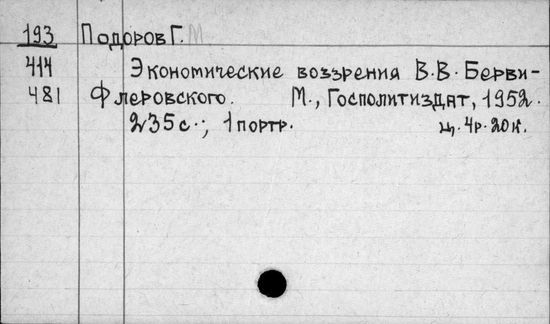 193 Подоров Г. М
414 Экономические воззрения В.В. Берви-
481 Флеровского. М., Госполитиздат, 1952.
235 с.; 1 портр. ц. 4р. 20к.